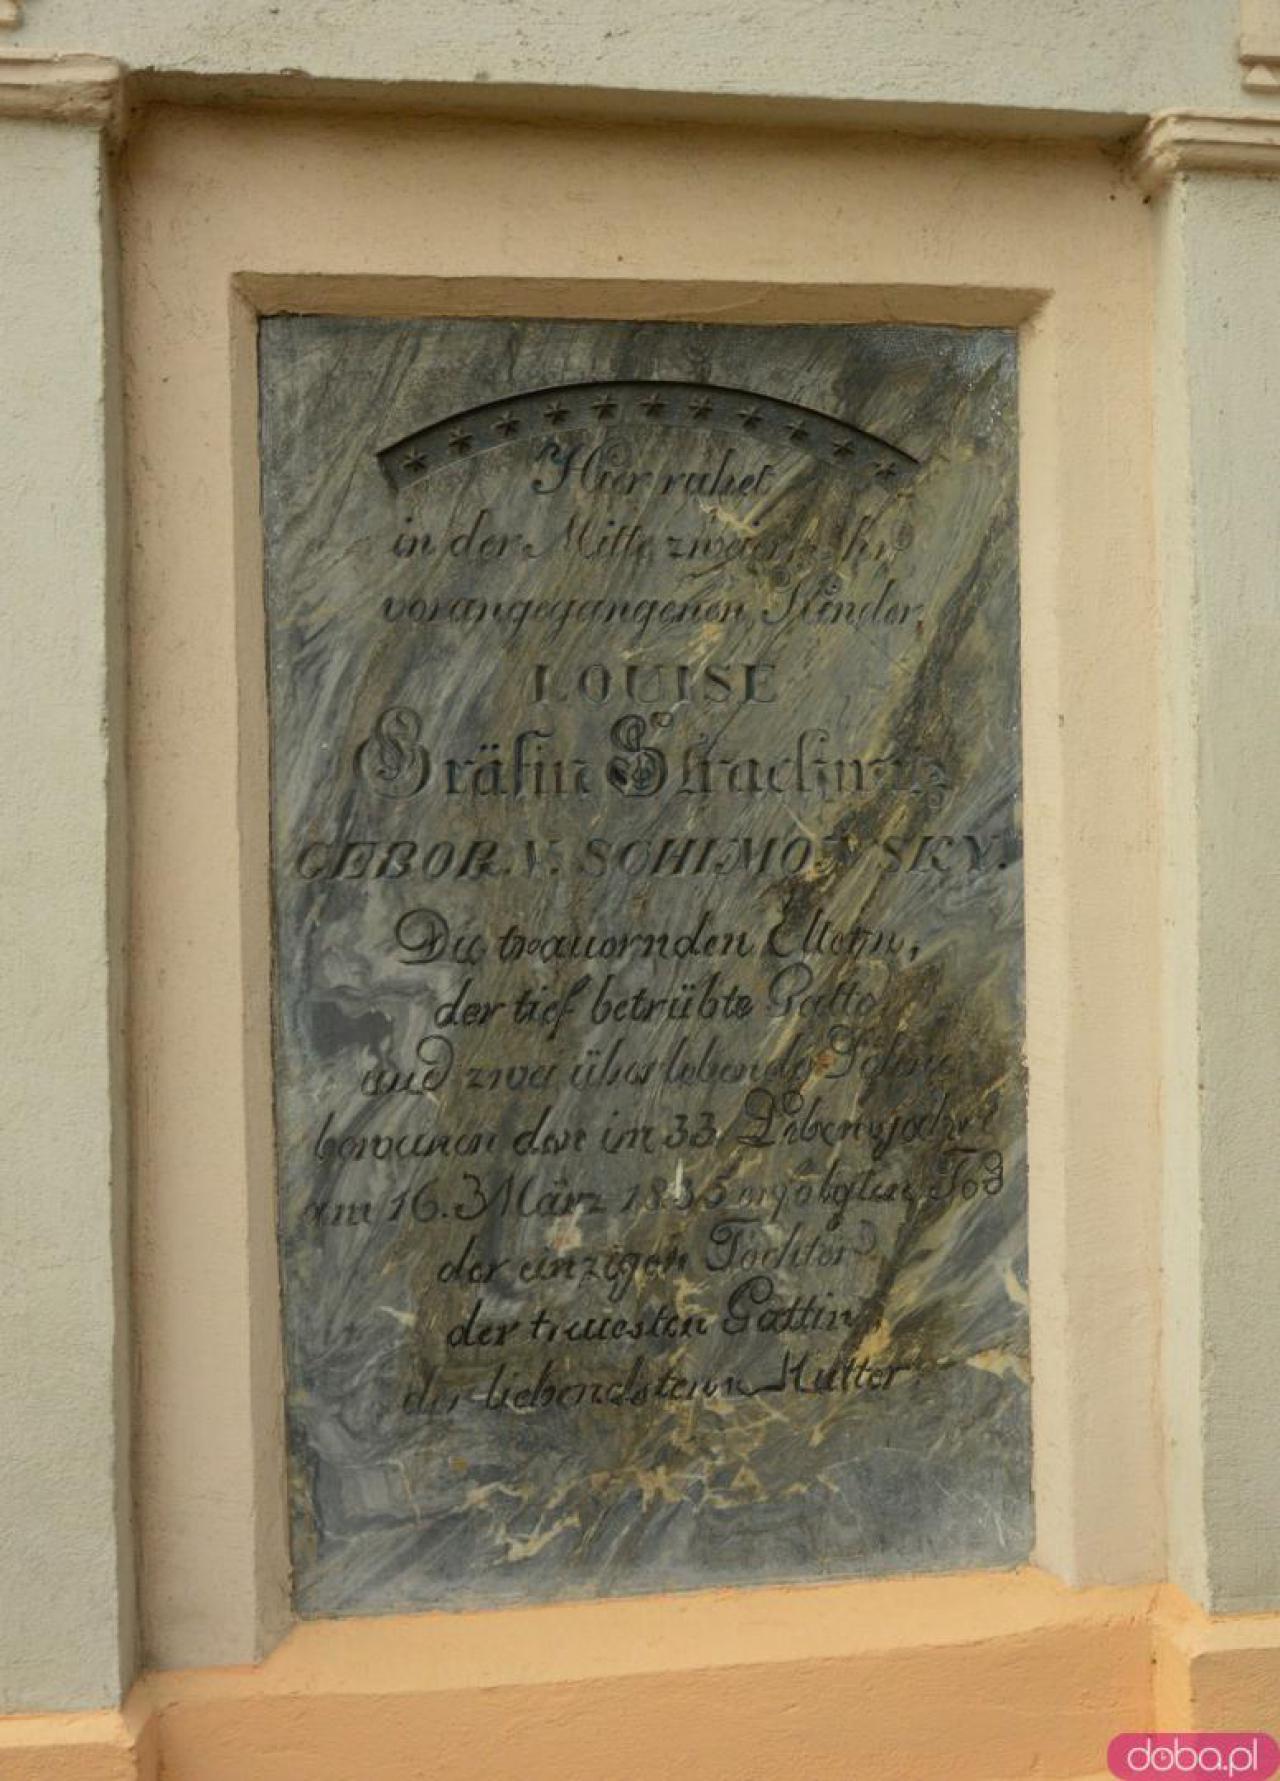 Hier ruhet
in der Mitte zweier Ihr
vorangegangenen Kinder,
LOUISE
Gräfin Strachwitz
GEBOR. V. SCHIMOWSKY.
Die trauernden Eltern,
der tief betrübte Gatte
und zwei überlebende Söhne
beweinen den im 33. Lebensjahre
am 16. März 1835 erfolgten Tod
der einzigen Tochter
der treuesten Gattin,
der liebendsten Mutter
doba.pl